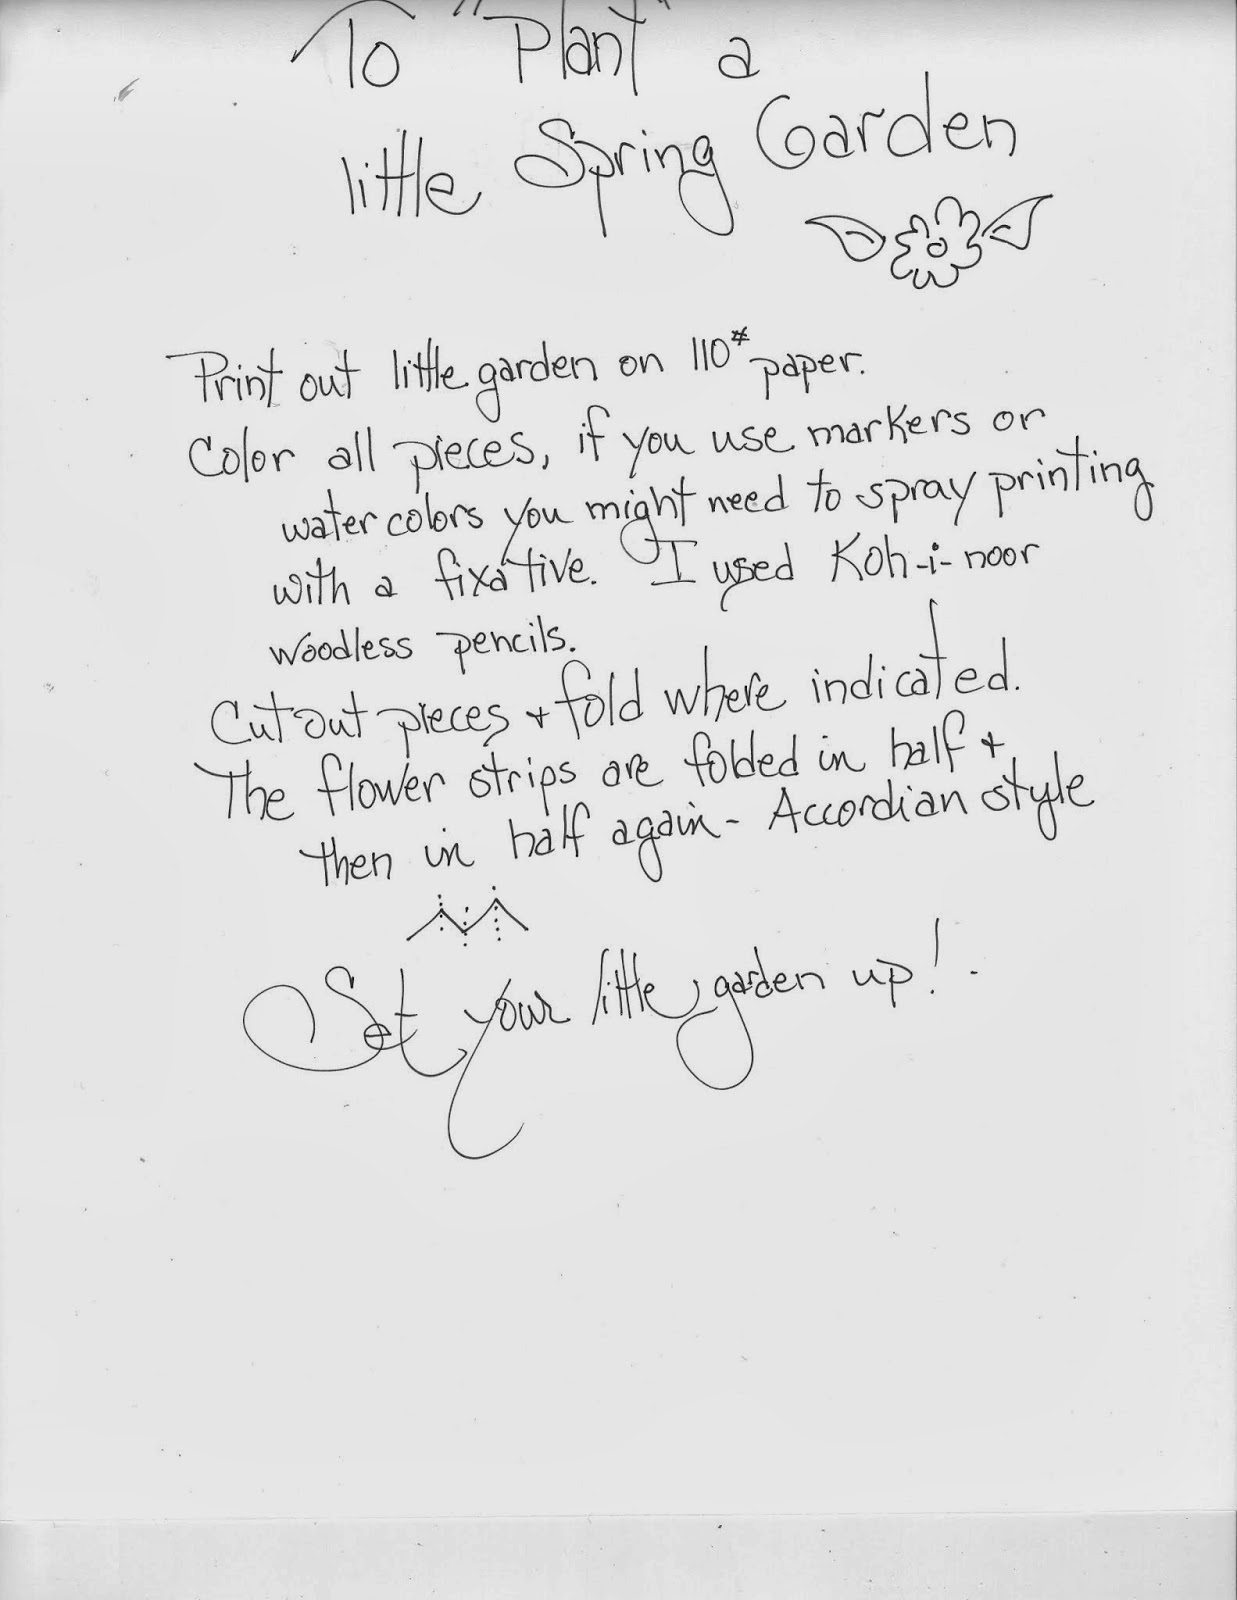 To "Plant" a
little Spring Garden
Print out little garden on 110# paper.
Color all pieces, if you use markers or
water colors you might need to spray printing
with a fixative. I used Koh-i-noor
woodless pencils.
Cut out pieces + fold where indicated.
The flower strips are folded in half +
then in half again - Accordian style
Set your little garden up!